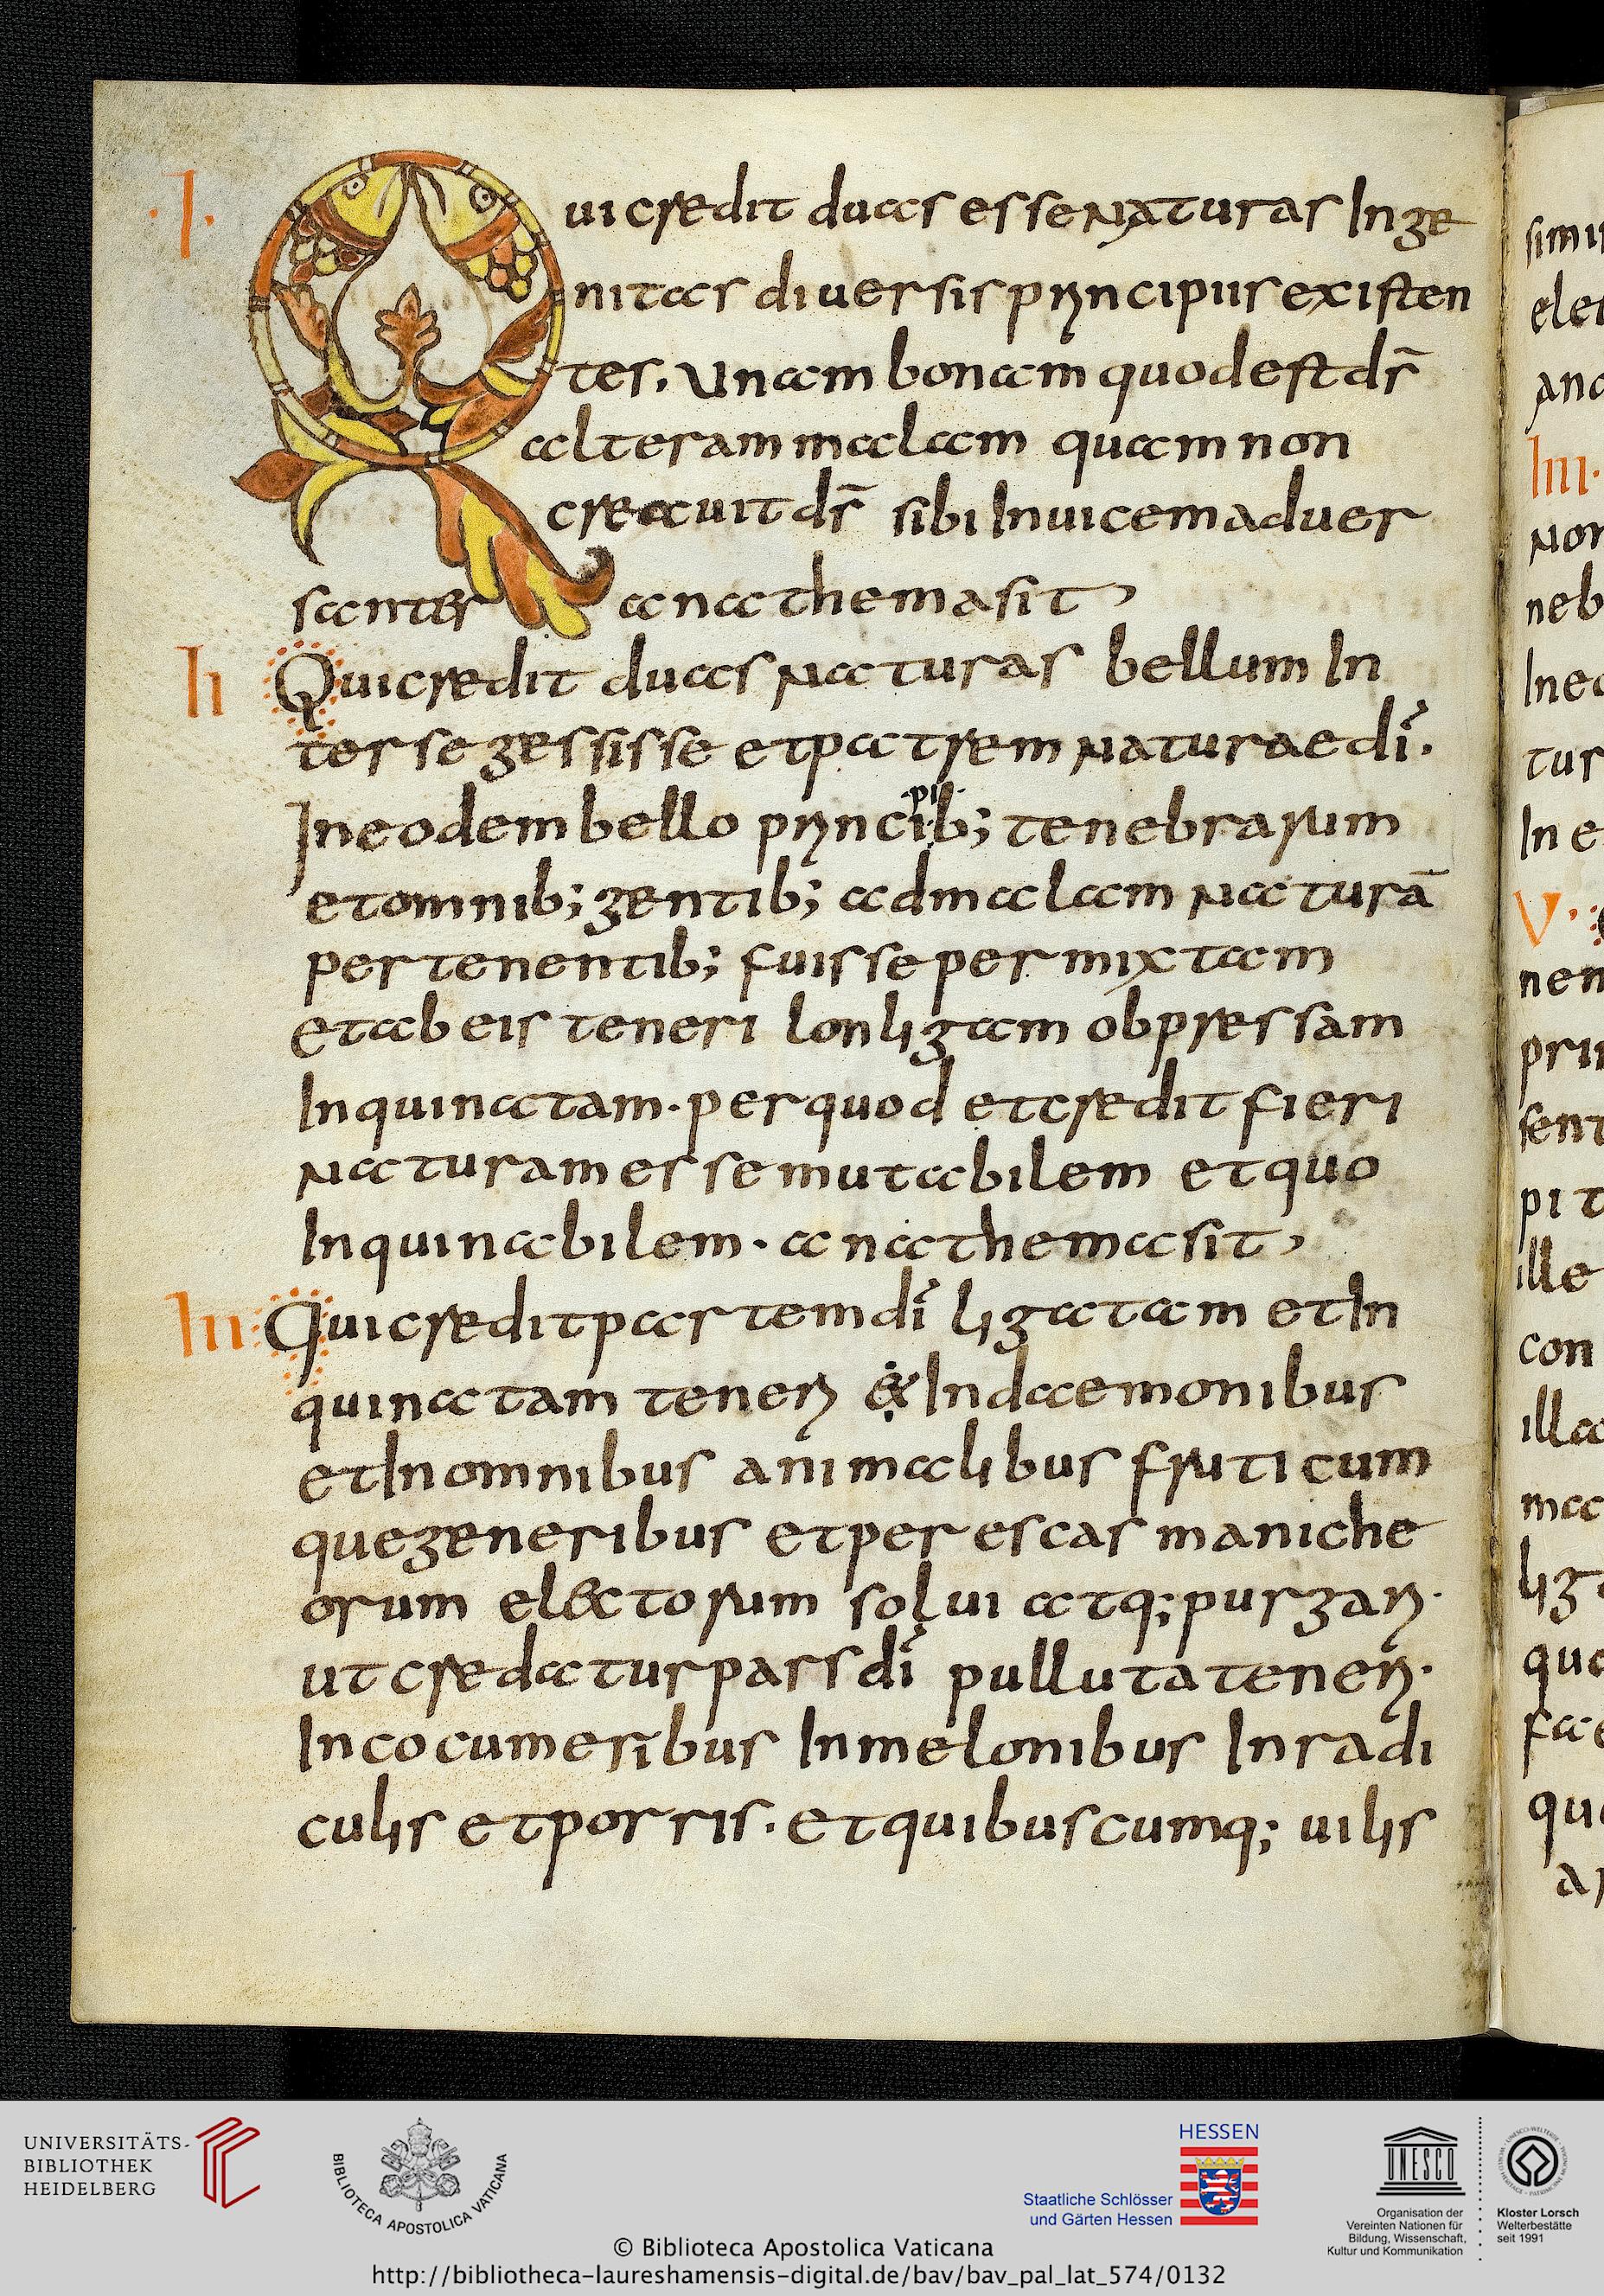 .I. Qui credit duas esse naturas inge
nitas diuersis principiis existen
tes. unam bonam quod est dš
alteram malam quam non
creauit dš sibi inuicem aduer
santes anathema sit,
II Qui credit duas naturas bellum in
ter se gessisse et partrem naturae dī.
In eodem bello principib; tenebrarum
et omnib; gentib; ad malam naturā
pertenentib; fuisse permixtam
et ab eis teneri lonligam obpressam
Inquinatam. per quod et credit fieri
naturam esse mutabilem et quo
Inquinabilem. anathema sit,
III Qui credit partem dī ligatam et in
quinatam teneri & in daemonibus
et in omnibus animalibus fruticum
que generibus et per escas maniche
orum el&ctorum solui atq; purgari.
ut credatur pars dī pulluta teneri.
In cocumeribus In melonibus In radi
culis et porris. et quibuscumq; uilis
simu
ele
III.
Nor
neb
Ine
tur
In e
V.
nen
pi t
ille
con
UNIVERSITÄTS-
BIBLIOTHEK
HEIDELBERG
BIBLIOTECA APOSTOLICA VATICANA
HESSEN
Staatliche Schlösser
und Gärten Hessen
UNESCO
Organisation der
Vereinten Nationen für
Bildung, Wissenschaft,
Kultur und Kommunikation
Kloster Lorsch
Welterbestätte
seit 1991
© Biblioteca Apostolica Vaticana
http://bibliotheca-laureshamensis-digital.de/bav/bav_pal_lat_574/0132